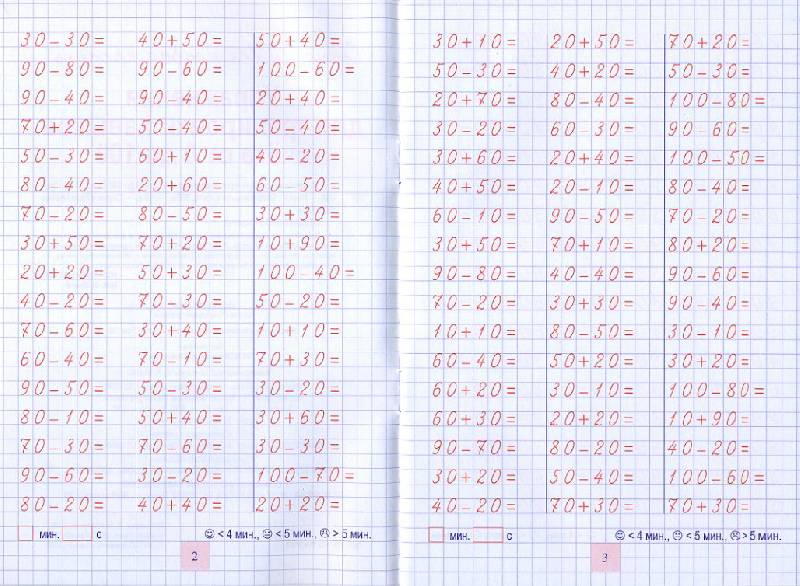 30-30= 40+50= 50+40=
90-80= 90-60= 100-60=
90-40= 90-40= 20+40=
70+20= 50-40= 50-40=
50-30= 60+10= 40-20=
80-40= 20+60= 60-50=
70-20= 80-50= 30+30=
30+50= 70+20= 10+90=
20+20= 50+30= 100-40=
40-20= 70-30= 50-20=
70-60= 30+40= 10+10=
60-40= 70-10= 70+30=
90-50= 50-30= 30-20=
80-10= 50+40= 30+60=
70-30= 70-60= 30-30=
90-60= 30-20= 100-70=
80-20= 40+40= 20+20=
мин. с ☺ < 4 мин., 😐 < 5 мин., ☹ > 5 мин.
2
30+10= 20+50= 70+20=
50-30= 40+20= 50-30=
20+70= 80-40= 100-80=
30-20= 60-30= 90-60=
30+60= 20+40= 100-50=
40+50= 20-10= 80-40=
60-10= 90-50= 70-20=
30+50= 70+10= 80+20=
90-80= 40-40= 90-60=
70-20= 30+30= 90-40=
10+10= 80-50= 30-10=
60-40= 50+20= 30+20=
60+20= 30-10= 100-80=
60+30= 20+20= 10+90=
90-70= 80-20= 40-20=
30+20= 50-40= 100-60=
40-20= 70+30= 70+30=
мин. с ☺ < 4 мин., 😐 < 5 мин., ☹ > 5 мин.
3